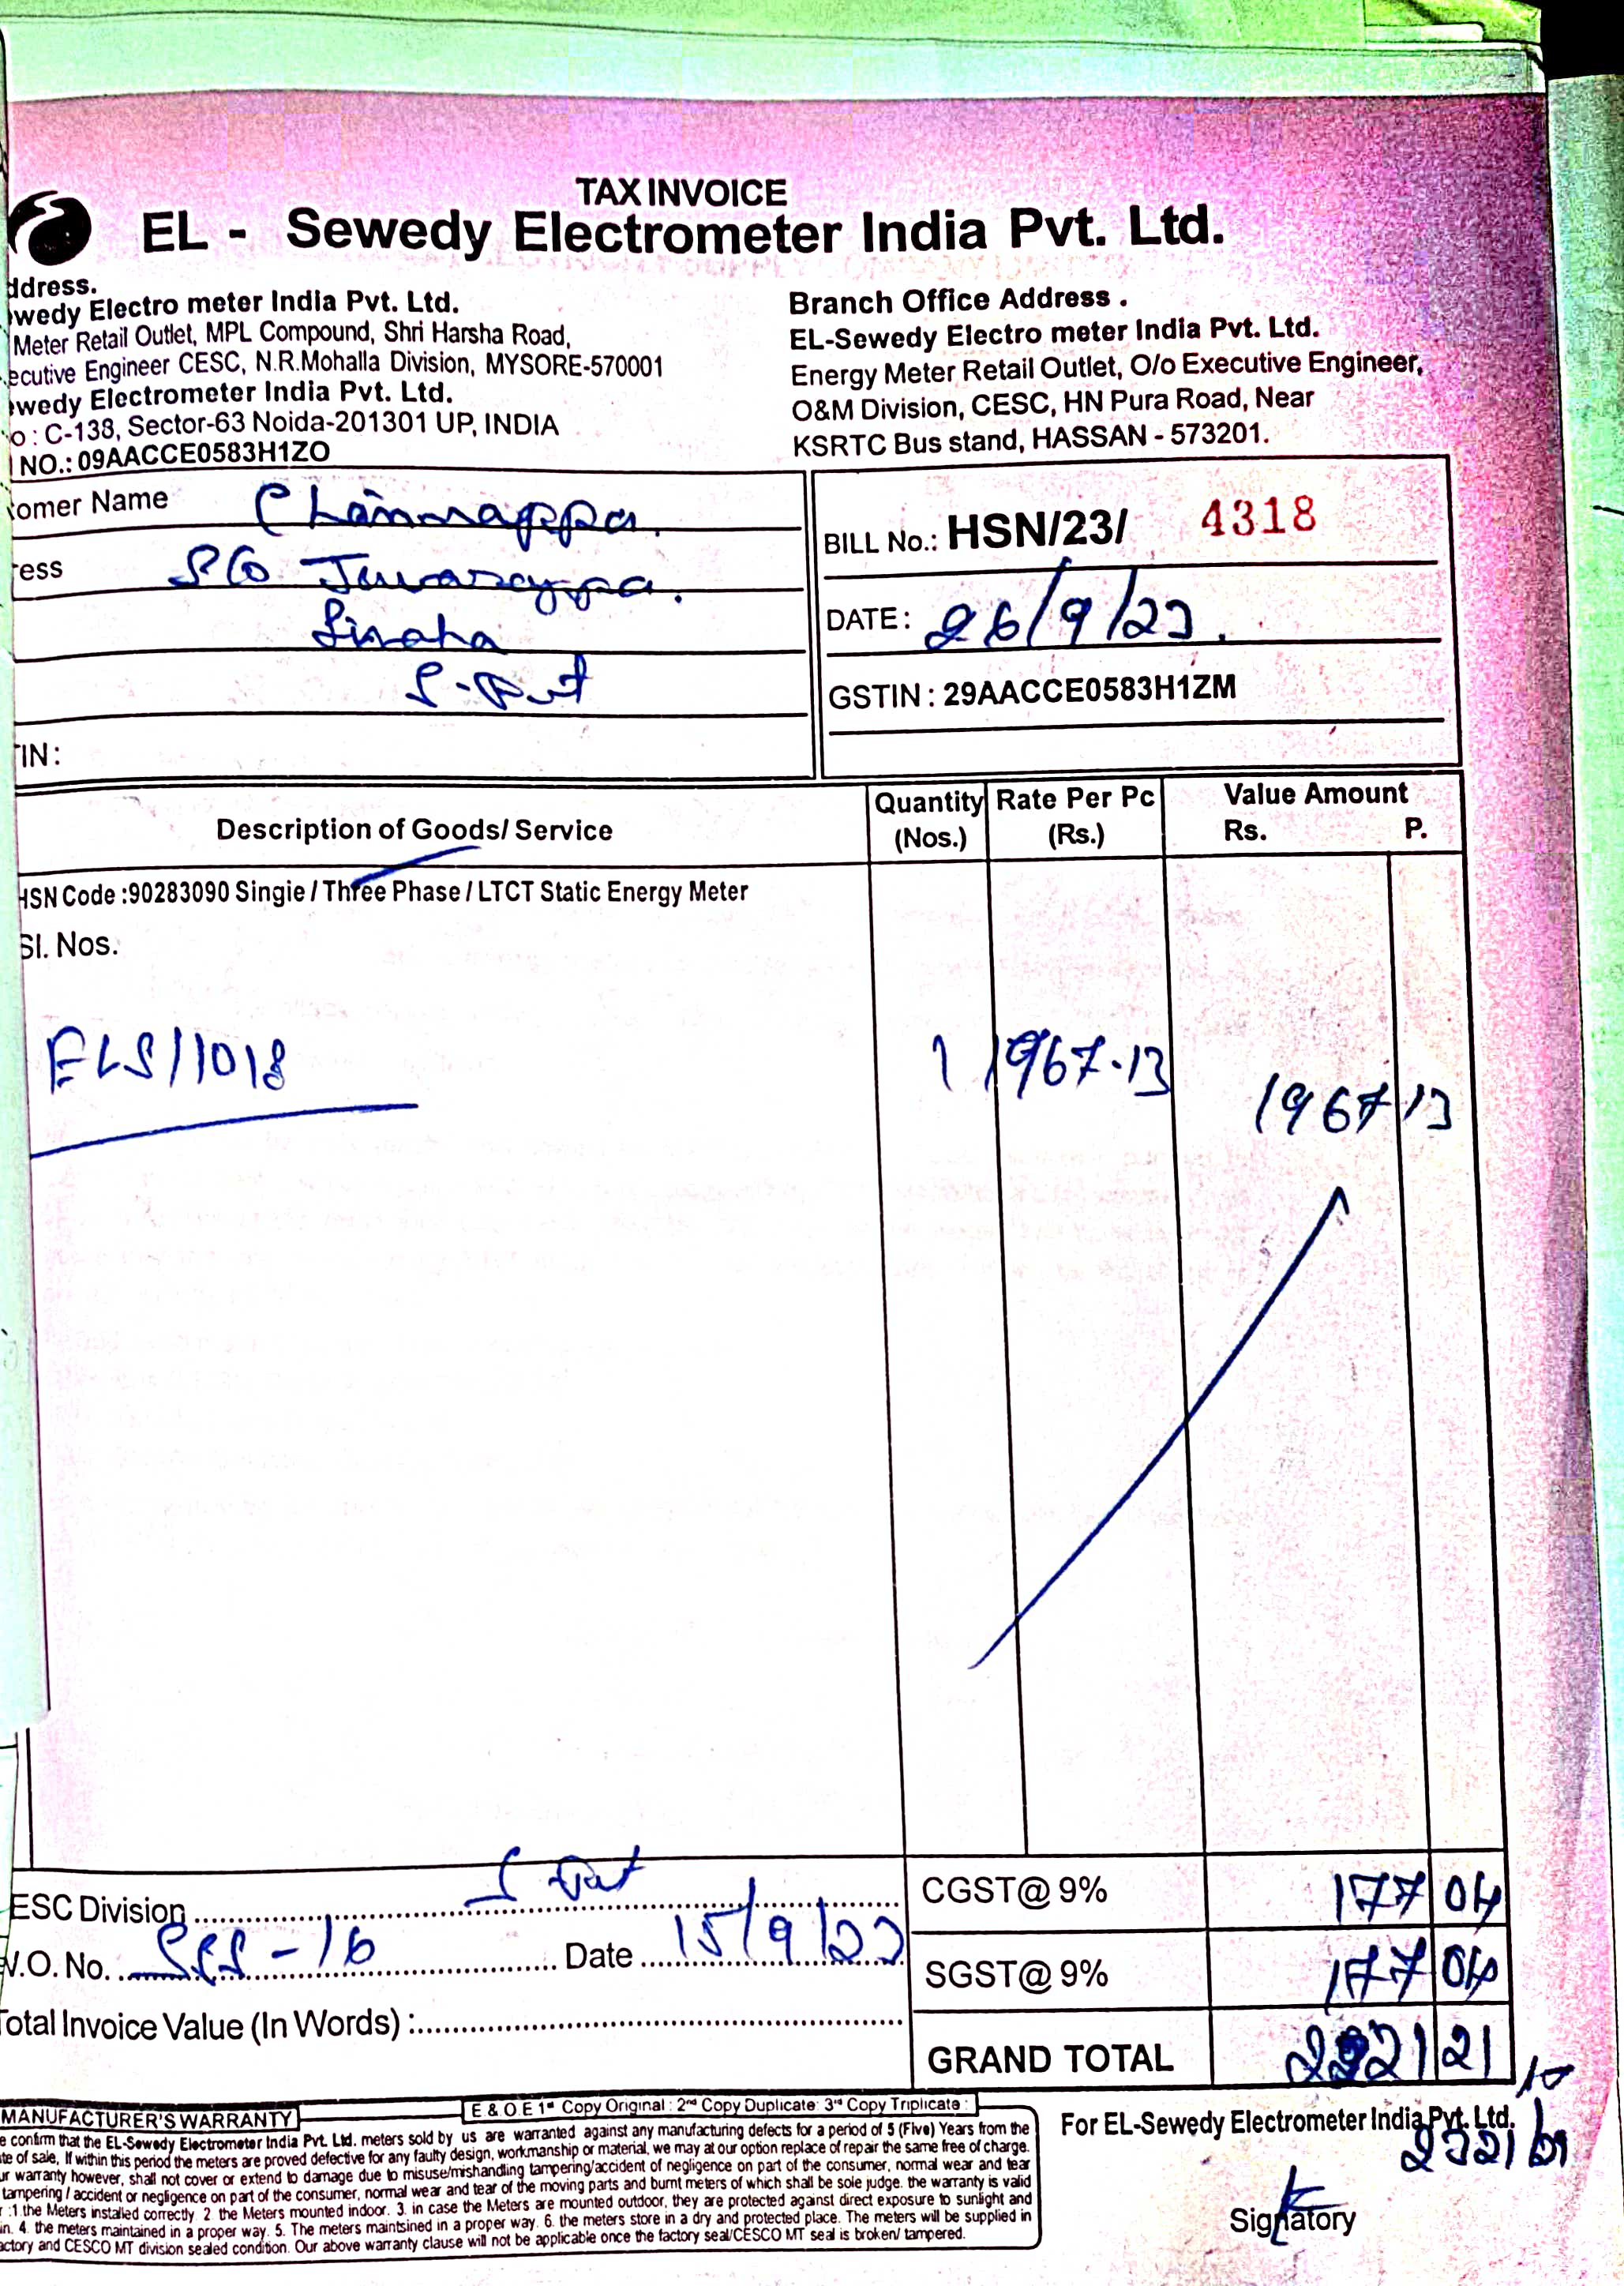 TAX INVOICE
EL - Sewedy Electrometer India Pvt. Ltd.
ddress.
wedy Electro meter India Pvt. Ltd.
Meter Retail Outlet, MPL Compound, Shri Harsha Road,
ecutive Engineer CESC, N.R.Mohalla Division, MYSORE-570001
wedy Electrometer India Pvt. Ltd.
o : C-138, Sector-63 Noida-201301 UP, INDIA
NO.: 09AACCE0583H1ZO
Branch Office Address .
EL-Sewedy Electro meter India Pvt. Ltd.
Energy Meter Retail Outlet, O/o Executive Engineer,
O&M Division, CESC, HN Pura Road, Near
KSRTC Bus stand, HASSAN - 573201.
omer Name Channappa.
ess S/o
IN :
BILL No.: HSN/23/ 4318
DATE : 26/9/23.
GSTIN : 29AACCE0583H1ZM
Description of Goods/ Service
Quantity (Nos.)
Rate Per Pc (Rs.)
Value Amount
Rs. P.
HSN Code :90283090 Singie / Three Phase / LTCT Static Energy Meter
Sl. Nos.
ELS11018 1 1967.13 1967 13
ESC Division
CGST@ 9% 177 04
V.O. No. -16 Date 15/9/23
SGST@ 9% 177 04
Total Invoice Value (In Words) :
GRAND TOTAL 2321 21
E & O E 1st Copy Original : 2nd Copy Duplicate: 3rd Copy Triplicate :
MANUFACTURER'S WARRANTY
e confirm that the EL-Sewedy Electrometer India Pvt. Ltd. meters sold by us are warranted against any manufacturing defects for a period of 5 (Five) Years from the
te of sale, If within this period the meters are proved defective for any faulty design, workmanship or material, we may at our option replace of repair the same free of charge.
ur warranty however, shall not cover or extend to damage due to misuse/mishandling tampering/accident of negligence on part of the consumer, normal wear and tear
tampering / accident or negligence on part of the consumer, normal wear and tear of the moving parts and burnt meters of which shall be sole judge. the warranty is valid
r :1 the Meters installed correctly. 2. the Meters mounted indoor. 3. in case the Meters are mounted outdoor, they are protected against direct exposure to sunlight and
in. 4. the meters maintained in a proper way. 5. The meters maintsined in a proper way. 6. the meters store in a dry and protected place. The meters will be supplied in
actory and CESCO MT division sealed condition. Our above warranty clause will not be applicable once the factory seal/CESCO MT seal is broken/ tampered.
For EL-Sewedy Electrometer India Pvt. Ltd.
Signatory